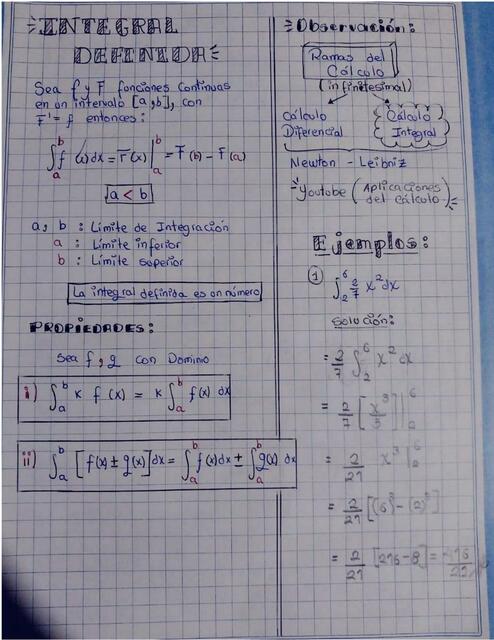 INTEGRAL
DEFINIDA
Sea f y F funciones continuas
en un intervalo [a,b], con
F' = f entonces:
∫_a^b f(x)dx = F(x)|_a^b = F(b) - F(a)
a < b
a, b : Límite de Integración
a : Límite inferior
b : Límite superior
La integral definida es un número
PROPIEDADES:
Sea f, g con Dominio
i) ∫_a^b K f(x) = K ∫_a^b f(x) dx
ii) ∫_a^b [f(x) ± g(x)]dx = ∫_a^b f(x)dx ± ∫_a^b g(x) dx
Observación:
Ramas del
Cálculo
(infinitesimal)
Cálculo
Diferencial
Cálculo
Integral
Newton - Leibniz
Youtube (Aplicaciones
del cálculo)
Ejemplos:
① ∫_2^6 2/7 x² dx
Solución:
= 2/7 ∫_2^6 x² dx
= 2/7 [x³/3]|_2^6
= 2/21 x³|_2^6
= 2/21 [(6)³-(2)³]
= 2/21 [216-8] =